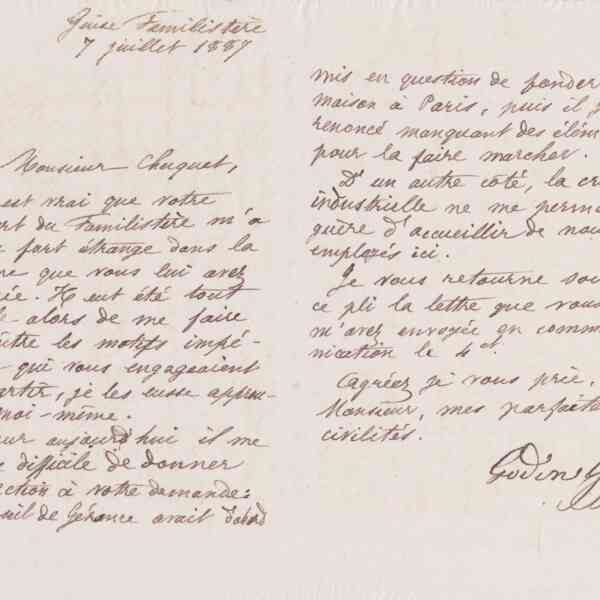 Guise Familistère
7 juillet 1887
Monsieur Chuquet,
est vrai que votre
rt du Familistère m'a
fort étrange dans la
re que vous lui avez
ée. Il eut été tout
alors de me faire
tre les motifs impé-
qui vous engageaient
artir, je les eusse approu-
moi-même.
ur aujourd'hui il me
difficile de donner
ction à votre demande:
seil de Gérance avait d'abord
mis en question de fonder
maison à Paris, puis il
renoncé manquant des élém
pour la faire marcher.
D'un autre côté, la cr
industrielle ne me perm
guère d'accueillir de nou
employés ici.
Je vous retourne sou
ce pli la lettre que vous
m'avez envoyée en comm
nication le 4 ct.
Agréez je vous prie,
Monsieur, mes parfaite
civilités.
Godin